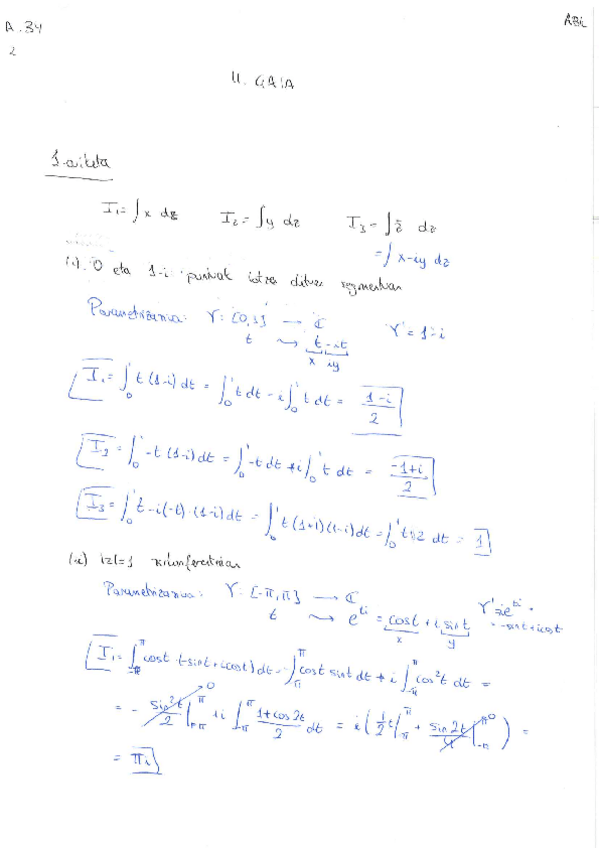 A.34
ABi
2
4. GAIA
1. ariketa
I₁ = ∫ x dz I₂ = ∫ y dz I₃ = ∫ z̄ dz
= ∫ x-iy dz
(i) 0 eta 1-i puntuak lotzen dituen segmentuan
Parametrizazioa: γ: [0,1] → ℂ γ' = 1-i
t ⇝ t - it
x iy
I₁ = ∫₀¹ t (1-i) dt = ∫₀¹ t dt - i ∫₀¹ t dt = (1-i)/2
I₂ = ∫₀¹ -t (1-i) dt = ∫₀¹ -t dt + i ∫₀¹ t dt = (-1+i)/2
I₃ = ∫₀¹ t - i(-t) · (1-i) dt = ∫₀¹ t (1+i)(1-i) dt = ∫₀¹ t 2 dt = 1
(ii) |z|=1 zirkunferentzian
Parametrizazioa: γ: [-π, π] → ℂ γ' = ie^{ti} =
t ⇝ e^{ti} = cos t + i sin t = -sin t + i cos t
x y
I₁ = ∫_{-π}^{π} cos t (-sin t + i cos t) dt = -∫_{-π}^{π} cos t sin t dt + i ∫_{-π}^{π} cos² t dt =
= - sin² t/2 |_{-π}^{π} 0 + i ∫_{-π}^{π} (1 + cos 2t)/2 dt = i ( 1/2 t |_{-π}^{π} + sin 2t/4 |_{-π}^{π} 0 ) =
= πi